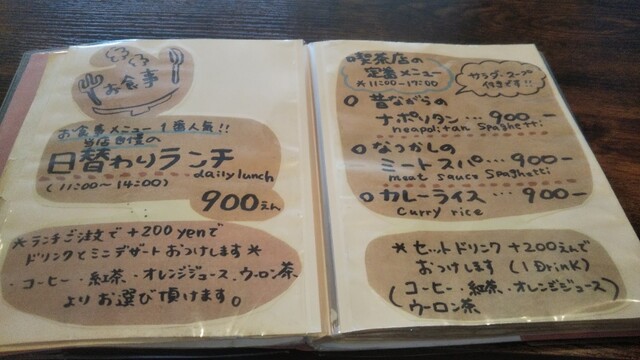 お食事
お食事メニュー1番人気!!
当店自慢の
日替わりランチ
daily lunch
(11:00~14:00)
900えん
*ランチご注文で+200yenで
ドリンクとミニデザートおつけします*
・コーヒー・紅茶・オレンジジュース・ウーロン茶
よりお選び頂けます。
喫茶店の
定番メニュー
*11:00-17:00*
サラダ・スープ
付きです!!
昔ながらの
ナポリタン…900-
neapolitan spaghetti
なつかしの
ミートスパ…900-
meat sauce spaghetti
カレーライス…900-
curry rice
*セットドリンク+200えんで
おつけします(1Drink)
(コーヒー・紅茶・オレンジジュース)
ウーロン茶